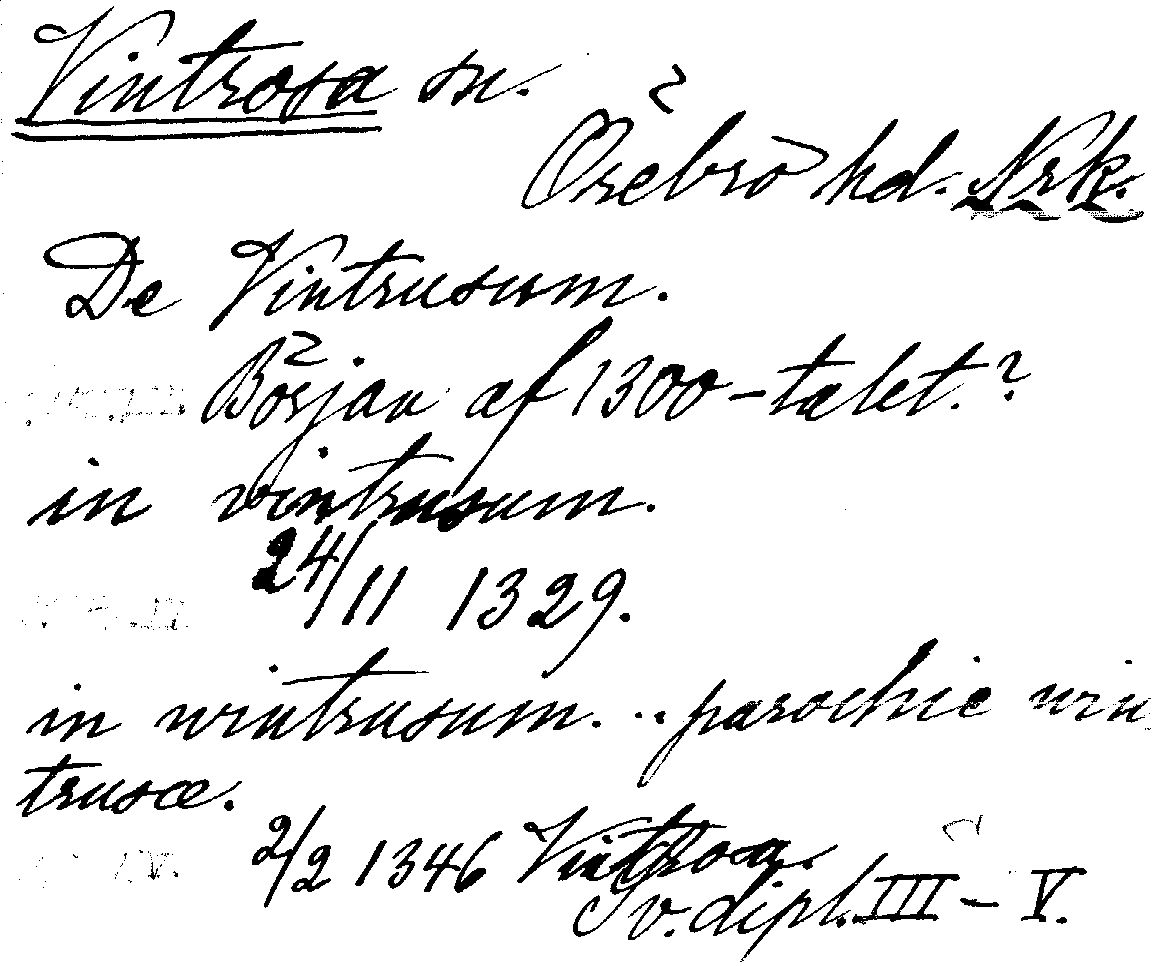 Vintrosa sn.
Örebro hd. Nrk.
De Vintrusum.
Början af 1300-talet.?
in vintrusum.
24/11 1329.
in wintrusum... parochie win
trusæ.
2/2 1346 Vintrosa.
Sv. dipl. III - V.